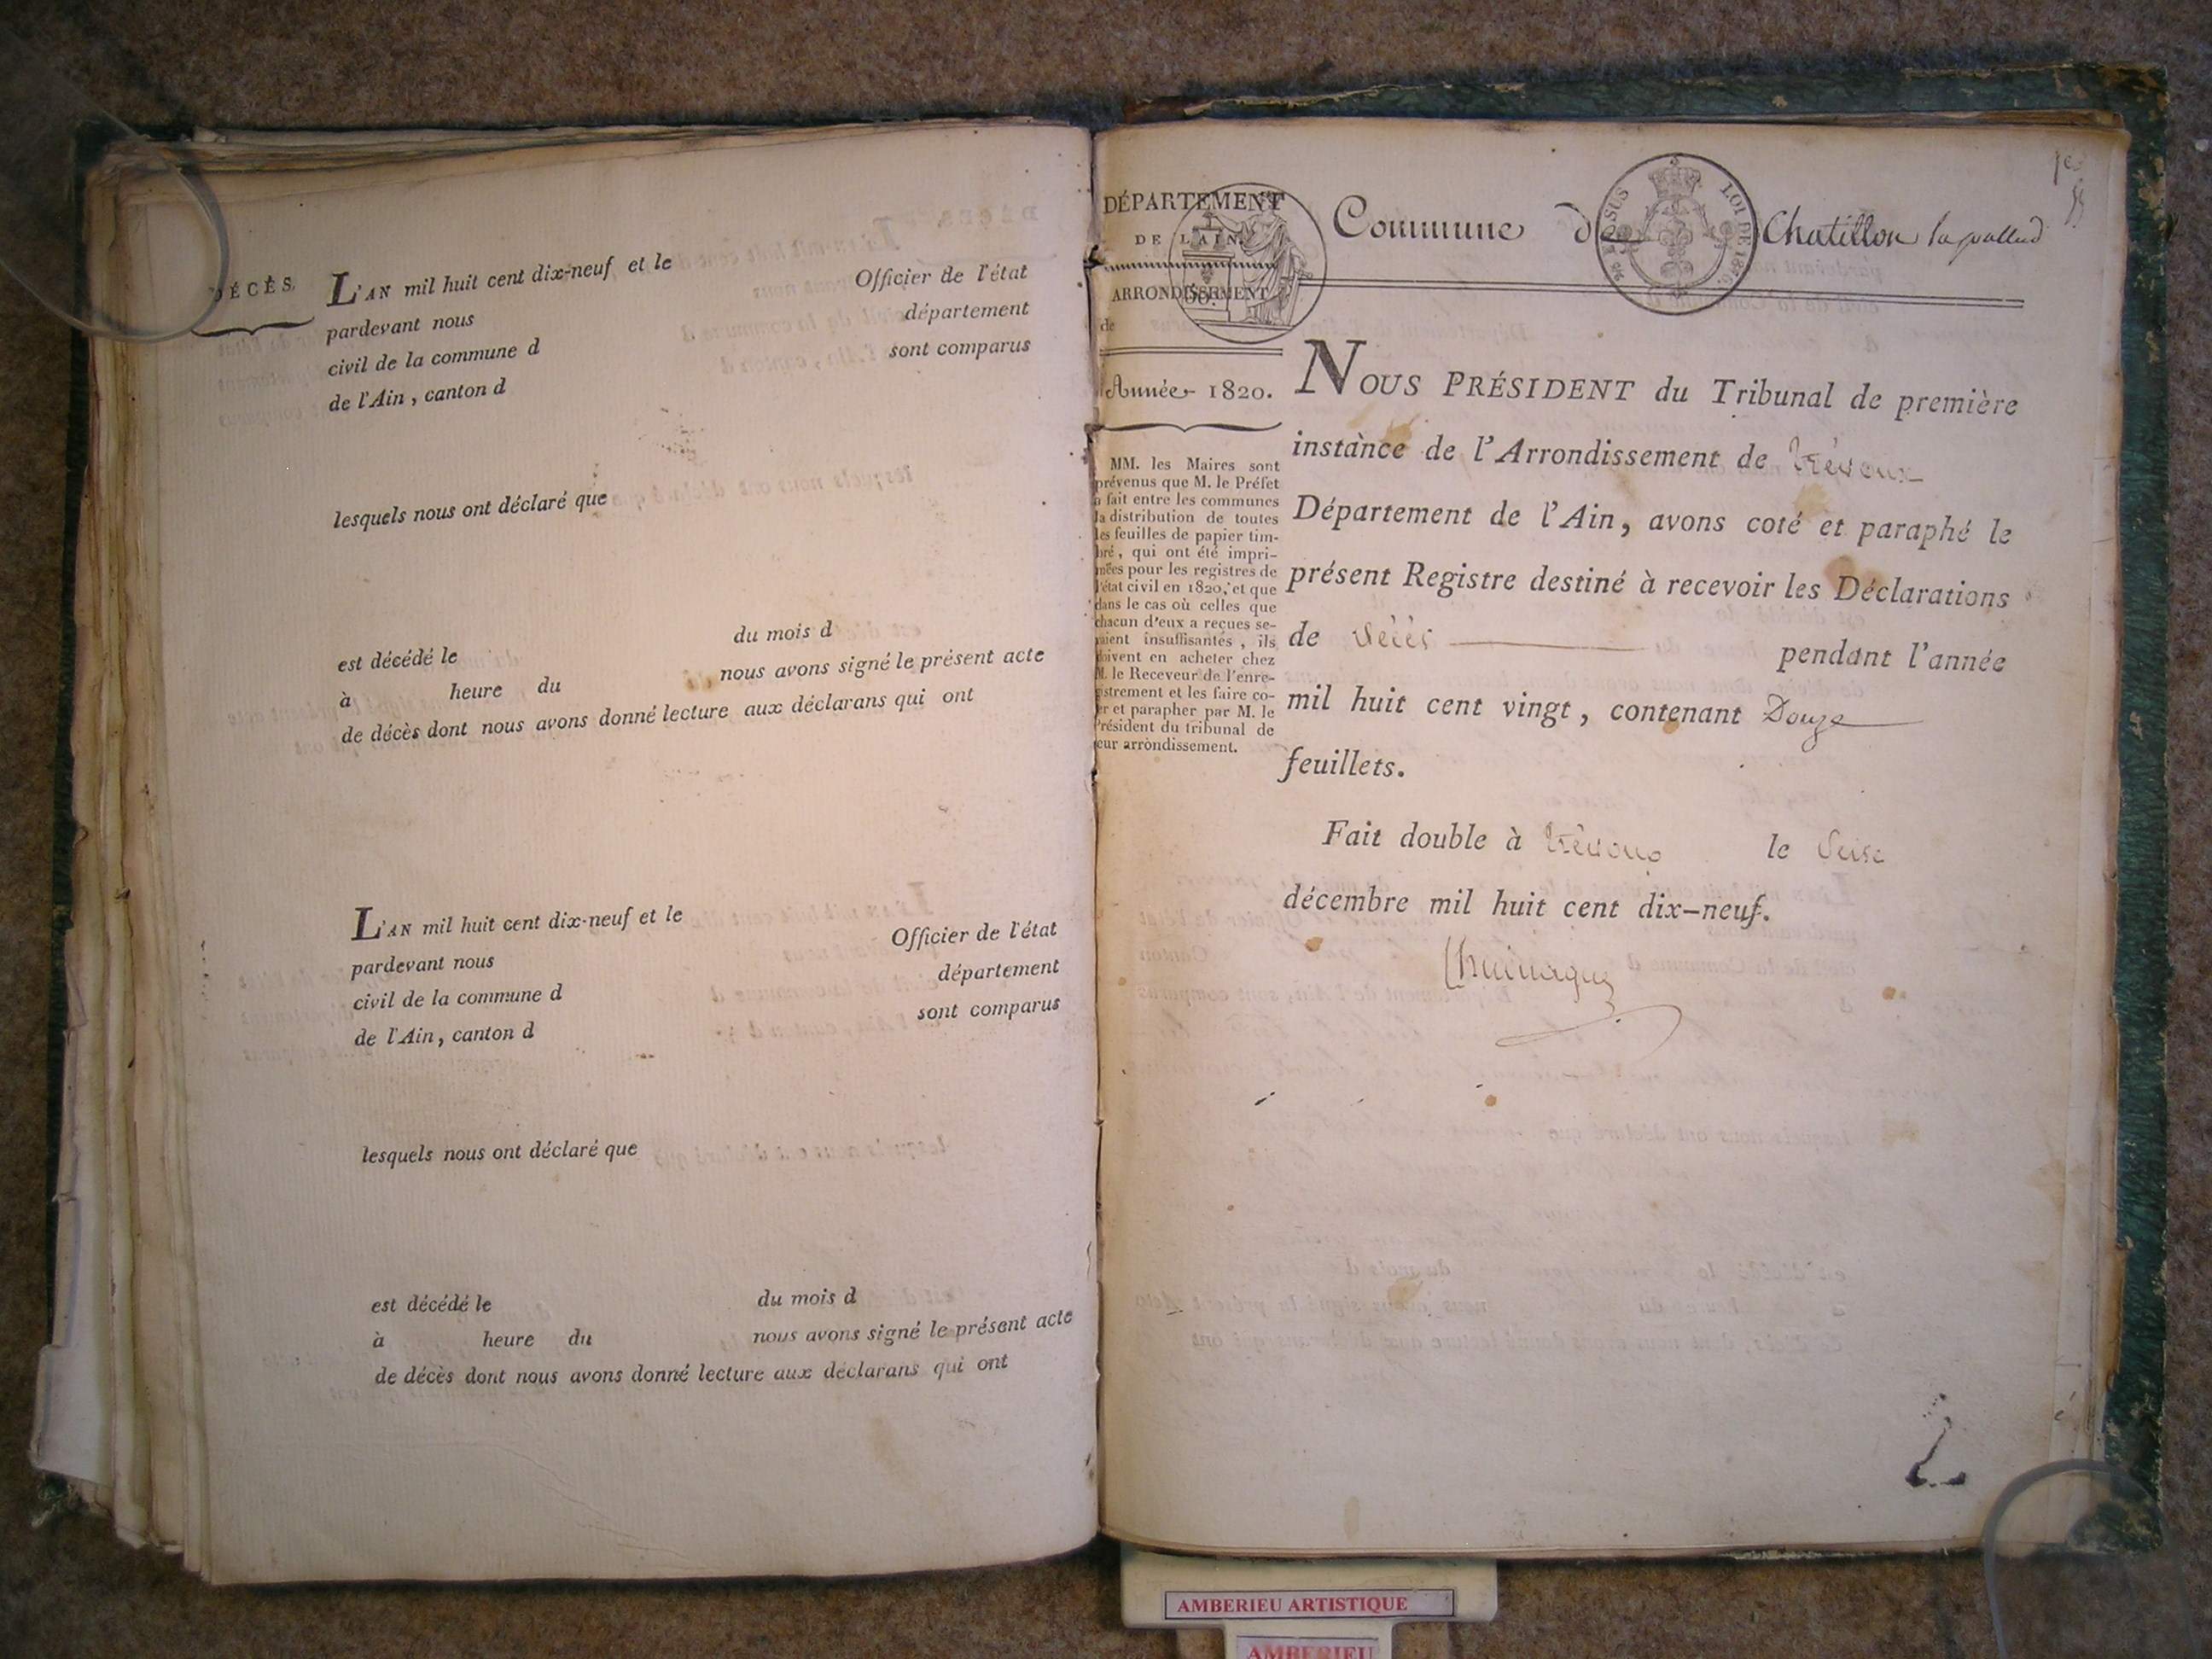 DÉCÈS.
L'AN mil huit cent dix-neuf et le
pardevant nous Officier de l'état
civil de la commune d département
de l'Ain, canton d sont comparus
lesquels nous ont déclaré que
est décédé le du mois d
à heure du nous avons signé le présent acte
de décès dont nous avons donné lecture aux déclarans qui ont
L'AN mil huit cent dix-neuf et le
pardevant nous Officier de l'état
civil de la commune d département
de l'Ain, canton d sont comparus
lesquels nous ont déclaré que
est décédé le du mois d
à heure du nous avons signé le présent acte
de décès dont nous avons donné lecture aux déclarans qui ont
DÉPARTEMENT
DE L'AIN.
ARRONDISSEMENT
de
Année 1820.
MM. les Maires sont
prévenus que M. le Préfet
a fait entre les communes
la distribution de toutes
les feuilles de papier tim-
bré, qui ont été impri-
mées pour les registres de
l'état civil en 1820, et que
dans le cas où celles que
chacun d'eux a reçues se-
raient insuffisantes, ils
doivent en acheter chez
M. le Receveur de l'enre-
gistrement et les faire co-
ter et parapher par M. le
Président du tribunal de
leur arrondissement.
Commune de Chatillon la pallud
EN SUS LOI DE 1816
NOUS PRÉSIDENT du Tribunal de première
instance de l'Arrondissement de Trévoux
Département de l'Ain, avons coté et paraphé le
présent Registre destiné à recevoir les Déclarations
de Décès pendant l'année
mil huit cent vingt, contenant Douze
feuillets.
Fait double à Trévoux le Seise
décembre mil huit cent dix-neuf.
AMBERIEU ARTISTIQUE
AMBERIEU